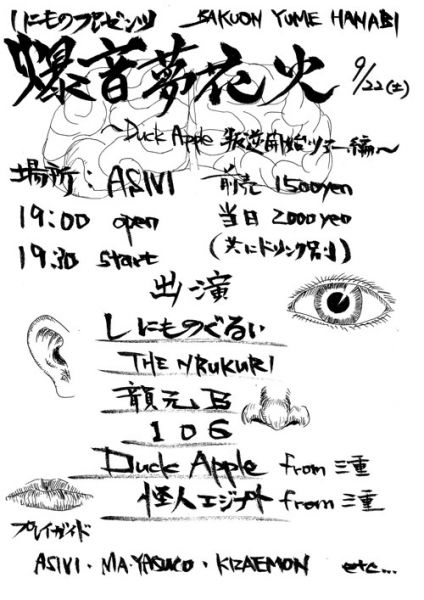 しにものプレゼンツ BAKUON YUME HANABI
爆音夢花火 9/22(土)
〜Duck Apple 叛逆開始ツアー編〜
場所:ASIVI 前売 1500yen
19:00 open 当日 2000yen
19:30 start (共にドリンク別)
出演
しにものぐるい
THE NRUKURI
顔元B
106
Duck Apple from 三重
怪人エジプト from 三重
プレイガイド
ASIVI・MA-YASUCO・KIZAEMON etc...